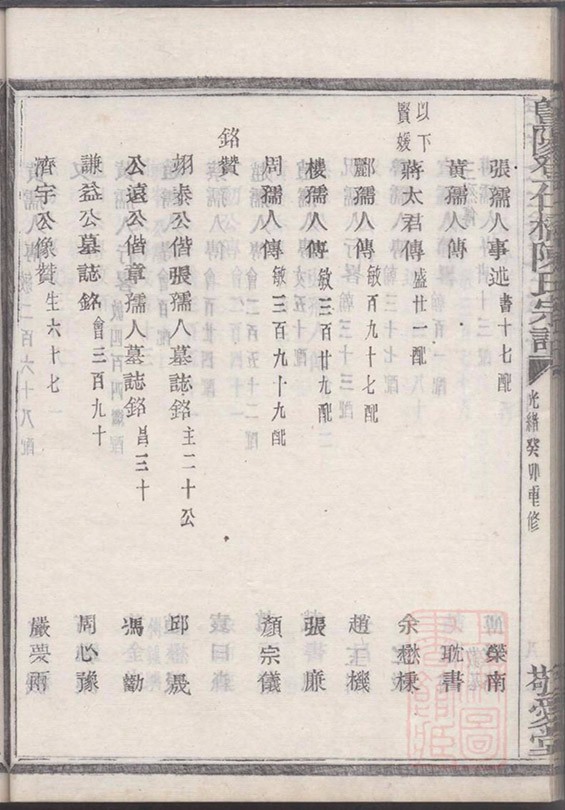 暨陽
陳氏宗譜
光緒癸卯重修
敬愛堂
張孺人事述 書十七配 榮南
黃孺人傳 耽書
以下賢媛
蔣太君傳 盛廿一配 余懋棟
酈孺人傳 敏三百九十七配 趙機
樓孺人傳 敏三百廿九配 張廉
周孺人傳 敏三百九十九配 顏宗儀
銘贊
翊泰公偕張孺人墓誌銘 主二十公 邱晟
公遠公偕章孺人墓誌銘 昌三十 馮勸
謙益公墓誌銘 會三百九十 周必豫
濟宇公像贊 生六十七 嚴夢雨